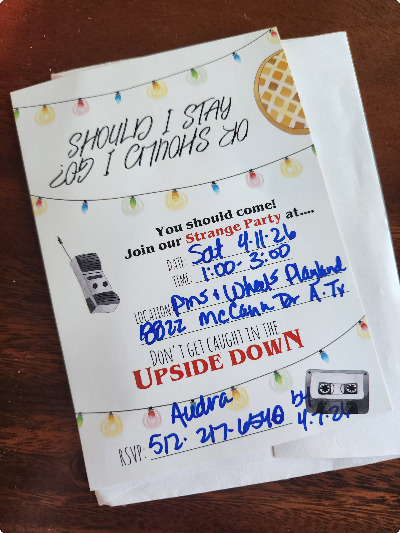 SHOULD I STAY
OR SHOULD I GO?
You should come!
Join our Strange Party at....
DATE: Sat 4.11.26
TIME: 1:00-3:00
LOCATION: Pins & Wheels Playland
8822 McCann Dr A. Tx
DON'T GET CAUGHT IN THE
UPSIDE DOWN
Audra
RSVP: 512-217-6540 by 4.7.26